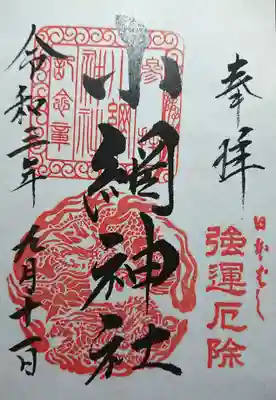 奉拝
日本ばし
強運厄除
小網神社
令和三年
九月十一日